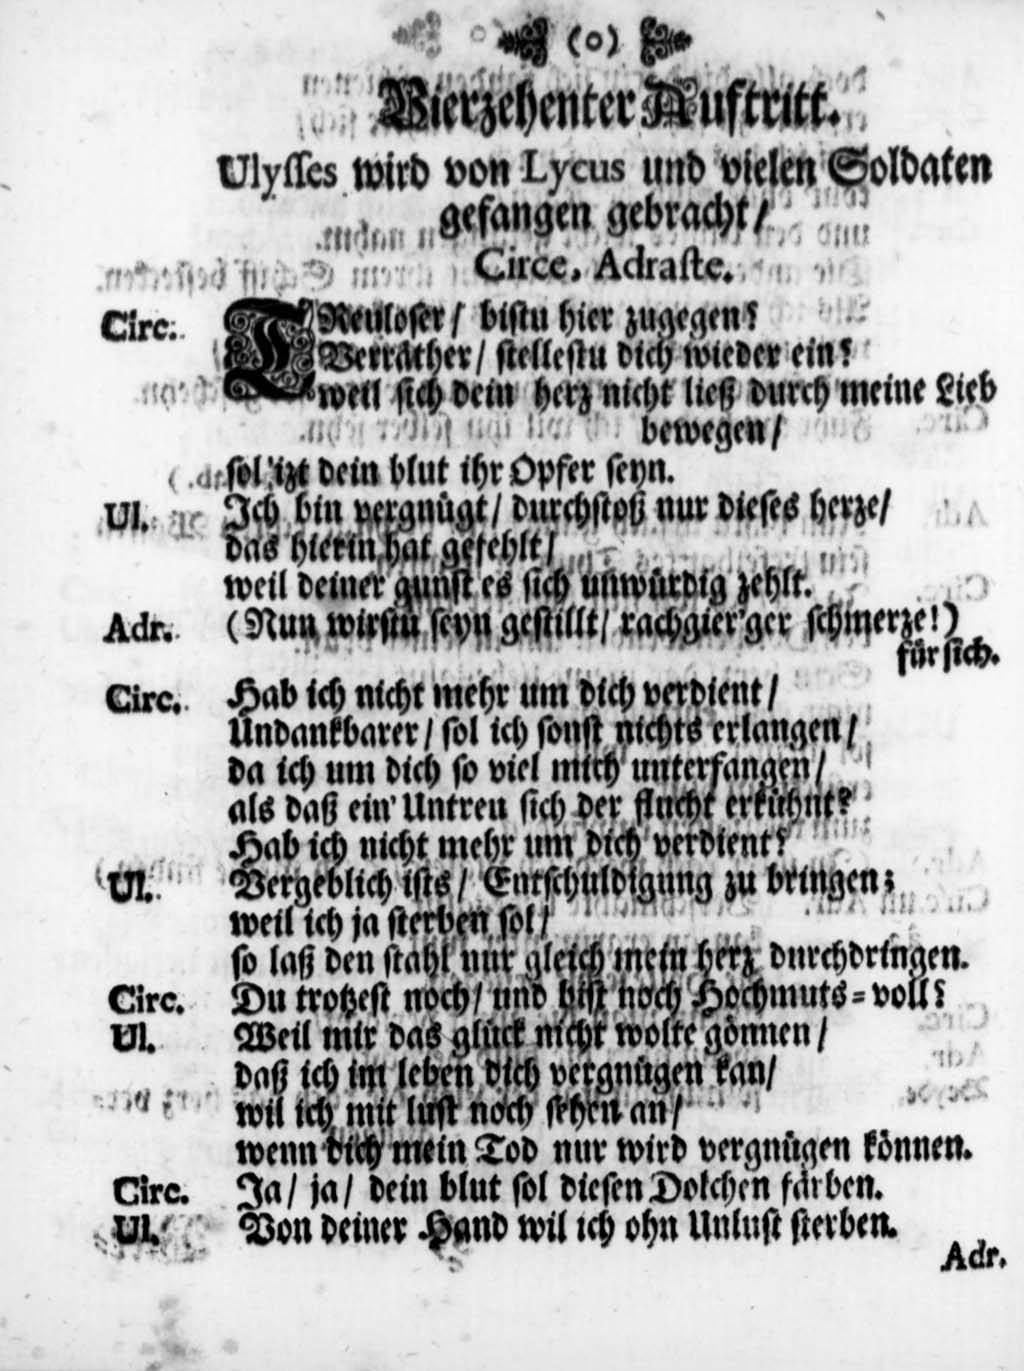 (o)
Vierzehenter Auftritt.
Ulysses wird von Lycus und vielen Soldaten
gefangen gebracht /
Circe. Adraste.
Circ. TReuloser / bistu hier zugegen?
Verräther / stellestu dich wieder ein?
weil sich dein herz nicht ließ durch meine Lieb
bewegen /
sol izt dein blut ihr Opfer seyn.
Ul. Ich bin vergnügt / durchstoß nur dieses herze /
das hierin hat gefehlt /
weil deiner gunst es sich unwürdig zehlt.
Adr. (Nun wirstu seyn gestillt / rachgier'ger schmerze!)
für sich.
Circ. Hab ich nicht mehr um dich verdient /
Undankbarer / sol ich sonst nichts erlangen /
da ich um dich so viel mich unterfangen /
als daß ein' Untreu sich der flucht erkühnt?
Hab ich nicht mehr um dich verdient?
Ul. Vergeblich ists / Entschuldigung zu bringen;
weil ich ja sterben sol /
so laß den stahl nur gleich mein herz durchdringen.
Circ. Du trotzest noch / und bist noch Hochmuts=voll?
Ul. Weil mir das glück nicht wolte gönnen /
daß ich im leben dich vergnügen kan /
wil ich mit lust noch sehen an /
wenn dich mein Tod nur wird vergnügen können.
Circ. Ja / ja / dein blut sol diesen Dolchen färben.
Ul. Von deiner Hand wil ich ohn Unlust sterben.
Adr.